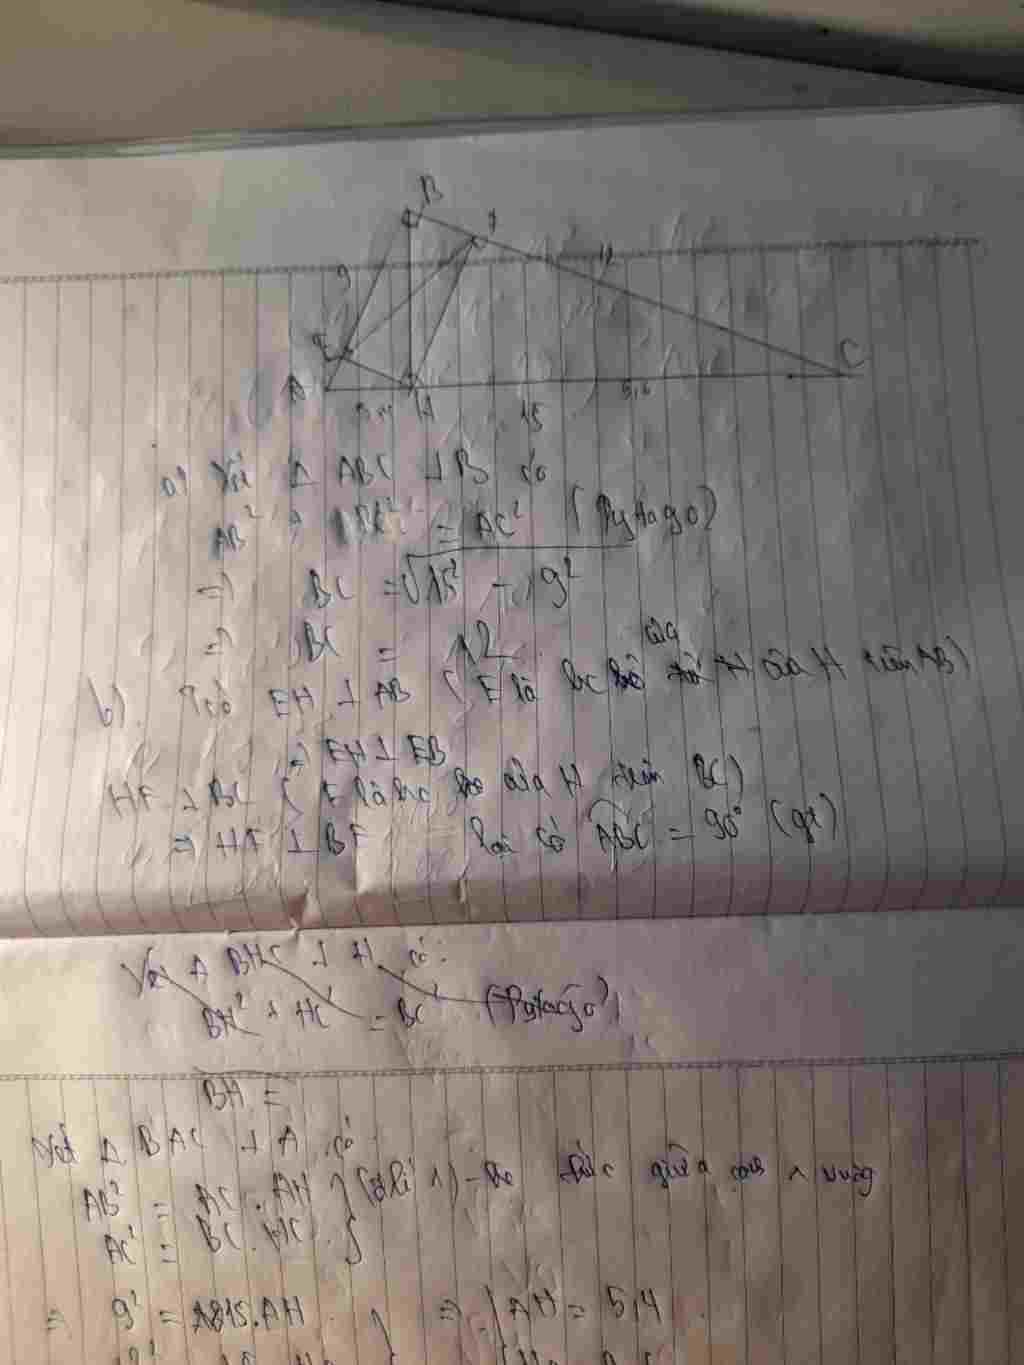 B
F
E
A
H
C
9
15
a) Xét Δ ABC ⊥ B có
AB² + BC² = AC² (Pytago)
=> BC = √15² - 9²
=> BC = 12
b). Tcó EH ⊥ AB (E là hc của H trên AB)
=> EH ⊥ EB
HF ⊥ BC (F là hc của H trên BC)
=> HF ⊥ BF lại có ABC = 90° (gt)
Xét Δ BHC ⊥ H có:
BH² + HC² = BC² (Pytago)
BH =
Xét Δ BAC ⊥ A có
AB² = AC . AH } (đlí 1) hệ thức giữa cạnh vuông
AC² = BC . HC
=> 9² = 15.AH => AH = 5,4